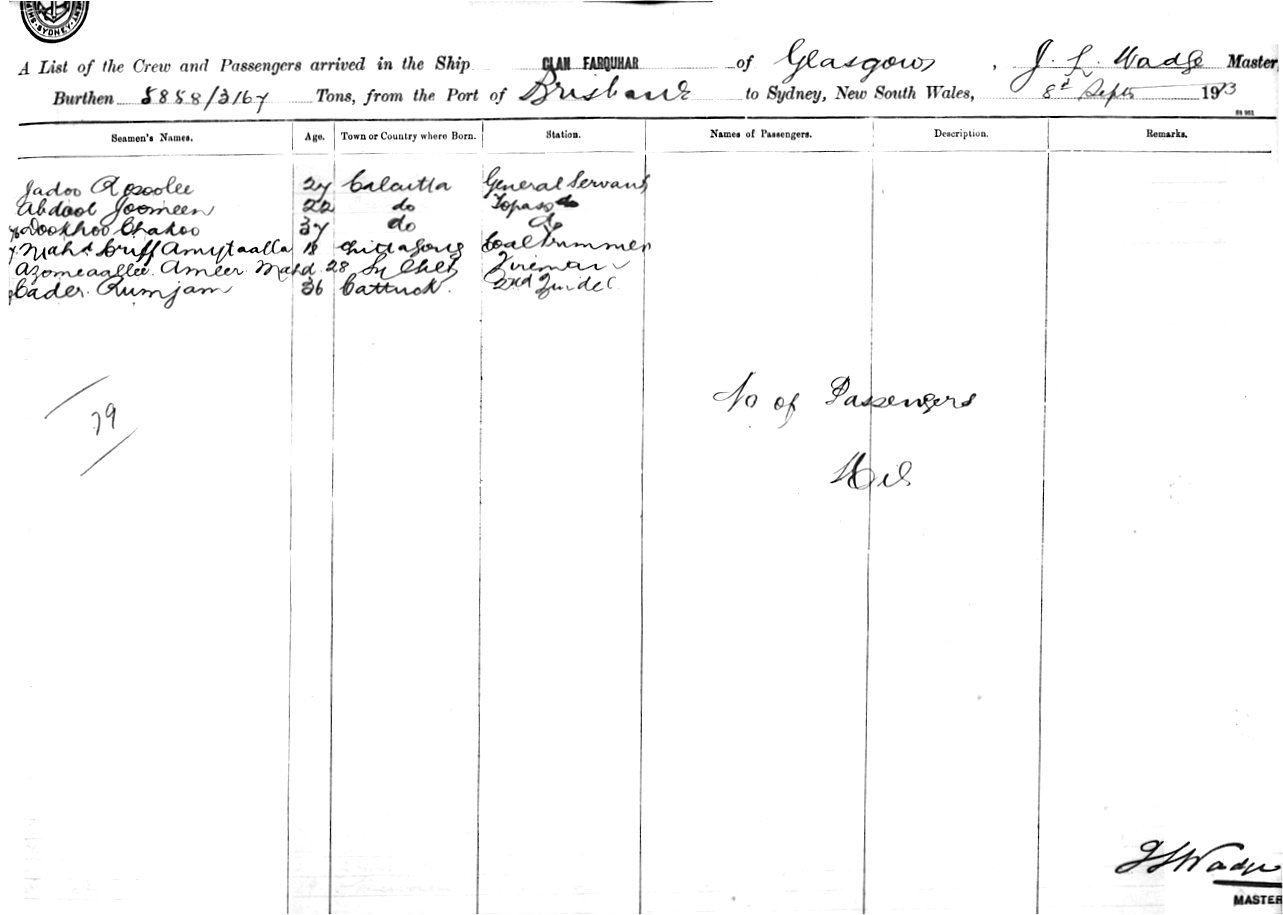 SYDNEY
A List of the Crew and Passengers arrived in the Ship CLAN FARQUHAR of Glasgow, J. L. Wadge Master
Burthen 5858/3167 Tons, from the Port of Brisbane to Sydney, New South Wales, 8th Sept 1913
Seamen's Names. Age. Town or Country where Born. Station. Names of Passengers. Description. Remarks.
Jadoo Rosoolee 27 Calcutta General Servant
Abdool Joomeen 22 do Topass
Dookhoo Chakoo 37 do do
Mahd Sriff Amytaalla 18 Chittagong Coal Trimmer
Azomeaallee Ameer Mahd 28 Sylhet Fireman
Cader Rumjam 36 Cattuck. 2nd Tindel
No of Passengers
79
Nil
J L Wadge
MASTER